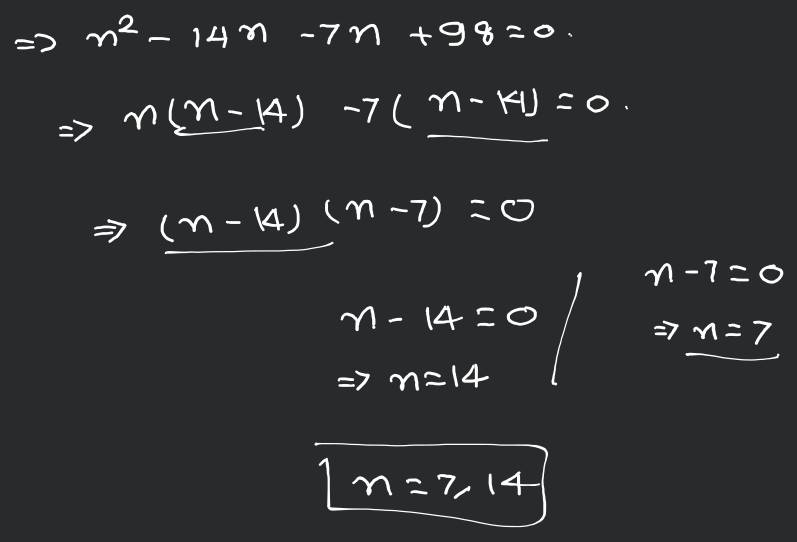 ⇒ n² - 14n - 7n + 98 = 0.
⇒ n(n - 14) - 7(n - 14) = 0.
⇒ (n - 14)(n - 7) = 0
n - 14 = 0
⇒ n = 14
/
n - 7 = 0
⇒ n = 7
n = 7, 14